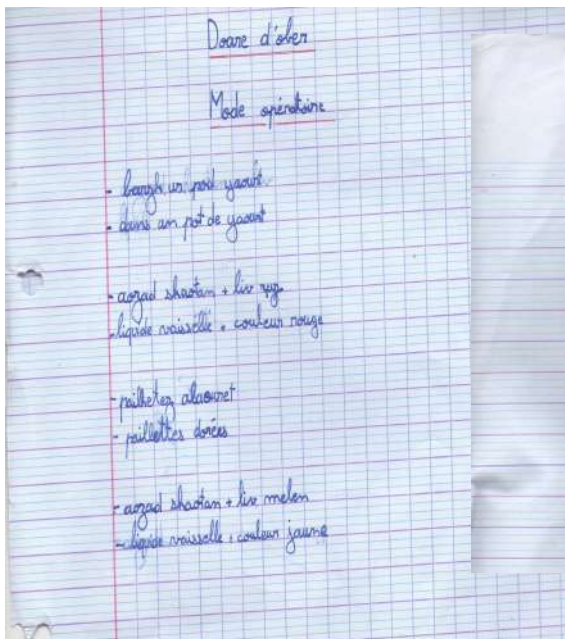 Doare d'ober
Mode opératoire
- barzh un pod yaourt.
- dans un pot de yaourt
- aozad shaotan + liv ruz
- liquide vaisselle + couleur rouge
- pailhetez alaouret
- paillettes dorées
- aozad shaotan + liv melen
- liquide vaisselle + couleur jaune